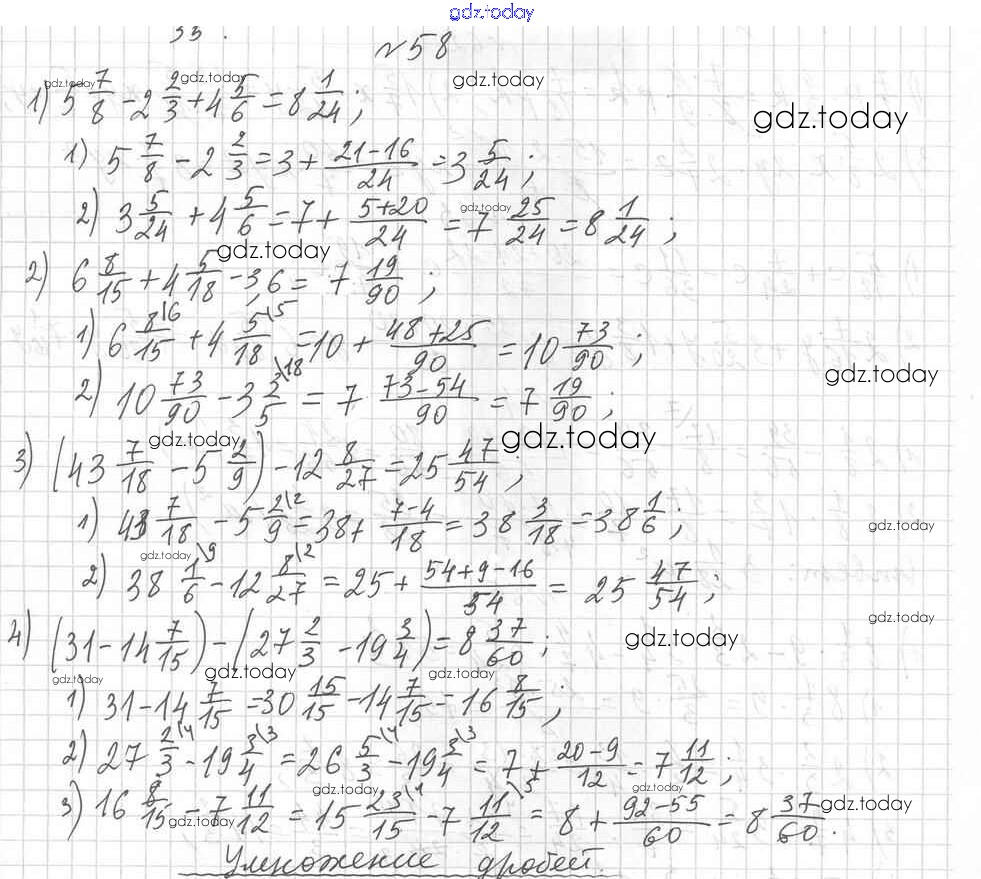 gdz.today
33.
№58
1) 5 7/8 - 2 2/3 + 4 5/6 = 8 1/24; gdz.today gdz.today gdz.today gdz.today
1) 5 7/8 - 2 2/3 = 3 + (21-16)/24 = 3 5/24;
2) 3 5/24 + 4 5/6 = 7 + (5+20)/24 = 7 25/24 = 8 1/24; gdz.today
gdz.today
2) 6 8/15 + 4 5/18 - 3,6 = 7 19/90;
1) 6 8\6/15 + 4 5\5/18 = 10 + (48+25)/90 = 10 73/90;
gdz.today
2) 10 73/90 - 3 3\18/5 = 7 (73-54)/90 = 7 19/90;
gdz.today gdz.today
3) (43 7/18 - 5 2/9) - 12 8/27 = 25 47/54;
1) 43 7/18 - 5 2\2/9 = 38 + (7-4)/18 = 38 3/18 = 38 1/6; gdz.today
gdz.today
2) 38 1\9/6 - 12 8\2/27 = 25 + (54+9-16)/54 = 25 47/54;
gdz.today
4) (31 - 14 7/15) - (27 2/3 - 19 3/4) = 8 37/60; gdz.today
gdz.today gdz.today gdz.today
1) 31 - 14 7/15 = 30 15/15 - 14 7/15 = 16 8/15;
2) 27 2\4/3 - 19 3\3/4 = 26 5\4/3 - 19 3\3/4 = 7 + (20-9)/12 = 7 11/12;
gdz.today gdz.today gdz.today
3) 16 8/15 - 7 11/12 = 15 23\4/15 - 7 11\5/12 = 8 + (92-55)/60 = 8 37/60.
gdz.today
Умножение дробей.